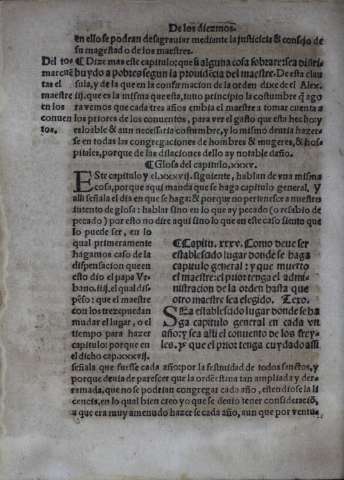 De los diezmos.
en ello se podean desagrauiar mediante la justicicia & consejo de
su magestad o de los maestres.
Del tor
marcuẽ
tas el
maestre
en los
conuen
tos.
¶ Dize mas este capitulo: que si alguna cosa sobrare sea distri
buydo a pobres segun la prouidẽcia del maestre. De esta clau
sula, y de la que en la confirmacion de la orden dize de el Alex.
iiij. que es la misma que esta, tuuo principio la costumbre q̃ ago
ra vemos que cada tres años embia el maestre a tomar cuenta a
los priores de los conuentos, para ver el gasto que esta hecho y
es loable & aun necessaria costumbre, y lo mismo deuria hazer
se en todas las congregaciones de hombres & mugeres, & hos
pitales, porque de las dilaciones dello ay notable daño.
¶ Glosa del capitulo. xxxv.
ESte capitulo y el. xxxvij. siguiente, hablan de vna misma
cosa, porque aqui manda que se haga capitulo general, y
alli señala el dia en que se haga: & porque no pertenesce a nuestro
intento de glosa: hablar sino en lo que ay pecado (o resabio de
pecado) por esto no dire aqui sino lo que en este caso siento que
lo puede ser, en lo
qual primeramente
hagamos caso de la
dispensacion que en
esto dio el papa Vr
bano. iiij. el qual dis
pẽso: que el maestre
con los treze puedan
mudar el lugar, o el
tiempo para hazer
capitulo: porque en
el dicho cap. xxxvij.
¶ Capitu. xxxv. Como deue ser
establescido lugar donde se haga
capitulo general: y que muerto
el maestre: el prior tenga el admi
nistracion de la orden hasta que
otro maestre sea elegido. Texo.
SEa establescido lugar donde se ha
ga capitulo general en cada vn
año: y sea alli el conuento de los frey
les. y que el prior tenga cuydado assi
señala que fuesse cada año: por la festiuidad de todos sanctos, y
porque deuia de parescer que la ordẽ estima tan ampliada y der
ramada, que no se podrian congregar cada año, estendiose la li
cencia, en lo qual bien creo yo que se deuio tener consideraciõ,
a que era muy amenudo hazerse cada año, aun que por ventu